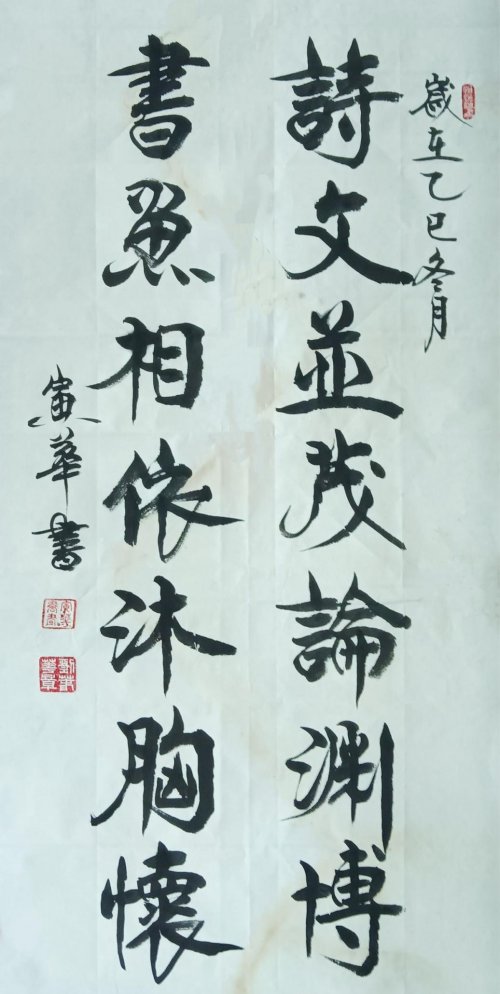 歲在乙巳冬月
詩文並茂論淵博
書墨相依沐胸懷
寅華書